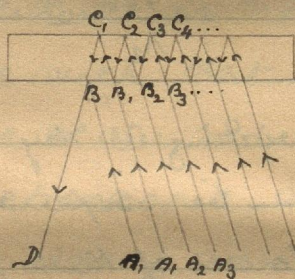 C₁ C₂ C₃ C₄ ...
B B₁ B₂ B₃ ....
D A₁ A₁ A₂ A₃